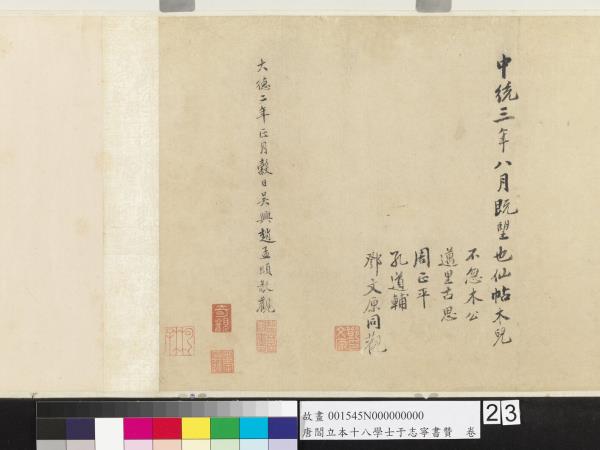 中統三年八月既望也仙帖木兒
不忽木公
邁里古思
周正平
孔道輔
鄧文原同觀
大德二年正月穀日吳興趙孟頫敬觀
故畫 001545N000000000
唐閻立本十八學士于志寧書贊 卷
23